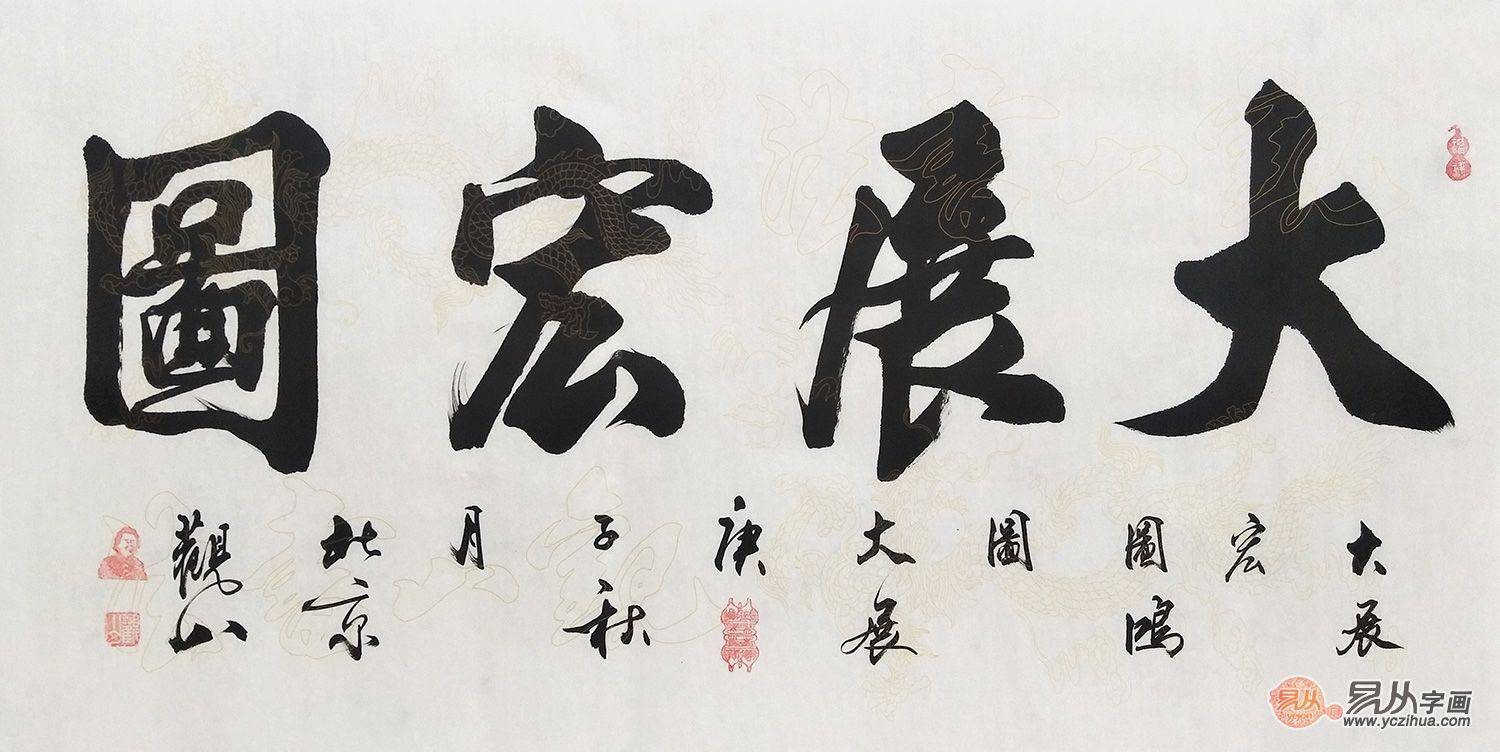 大展宏圖
大展
宏
圖鴻
圖
大展
庚
子秋
月
北京
觀山
易从
yicion
易从字画
www.yczihua.com